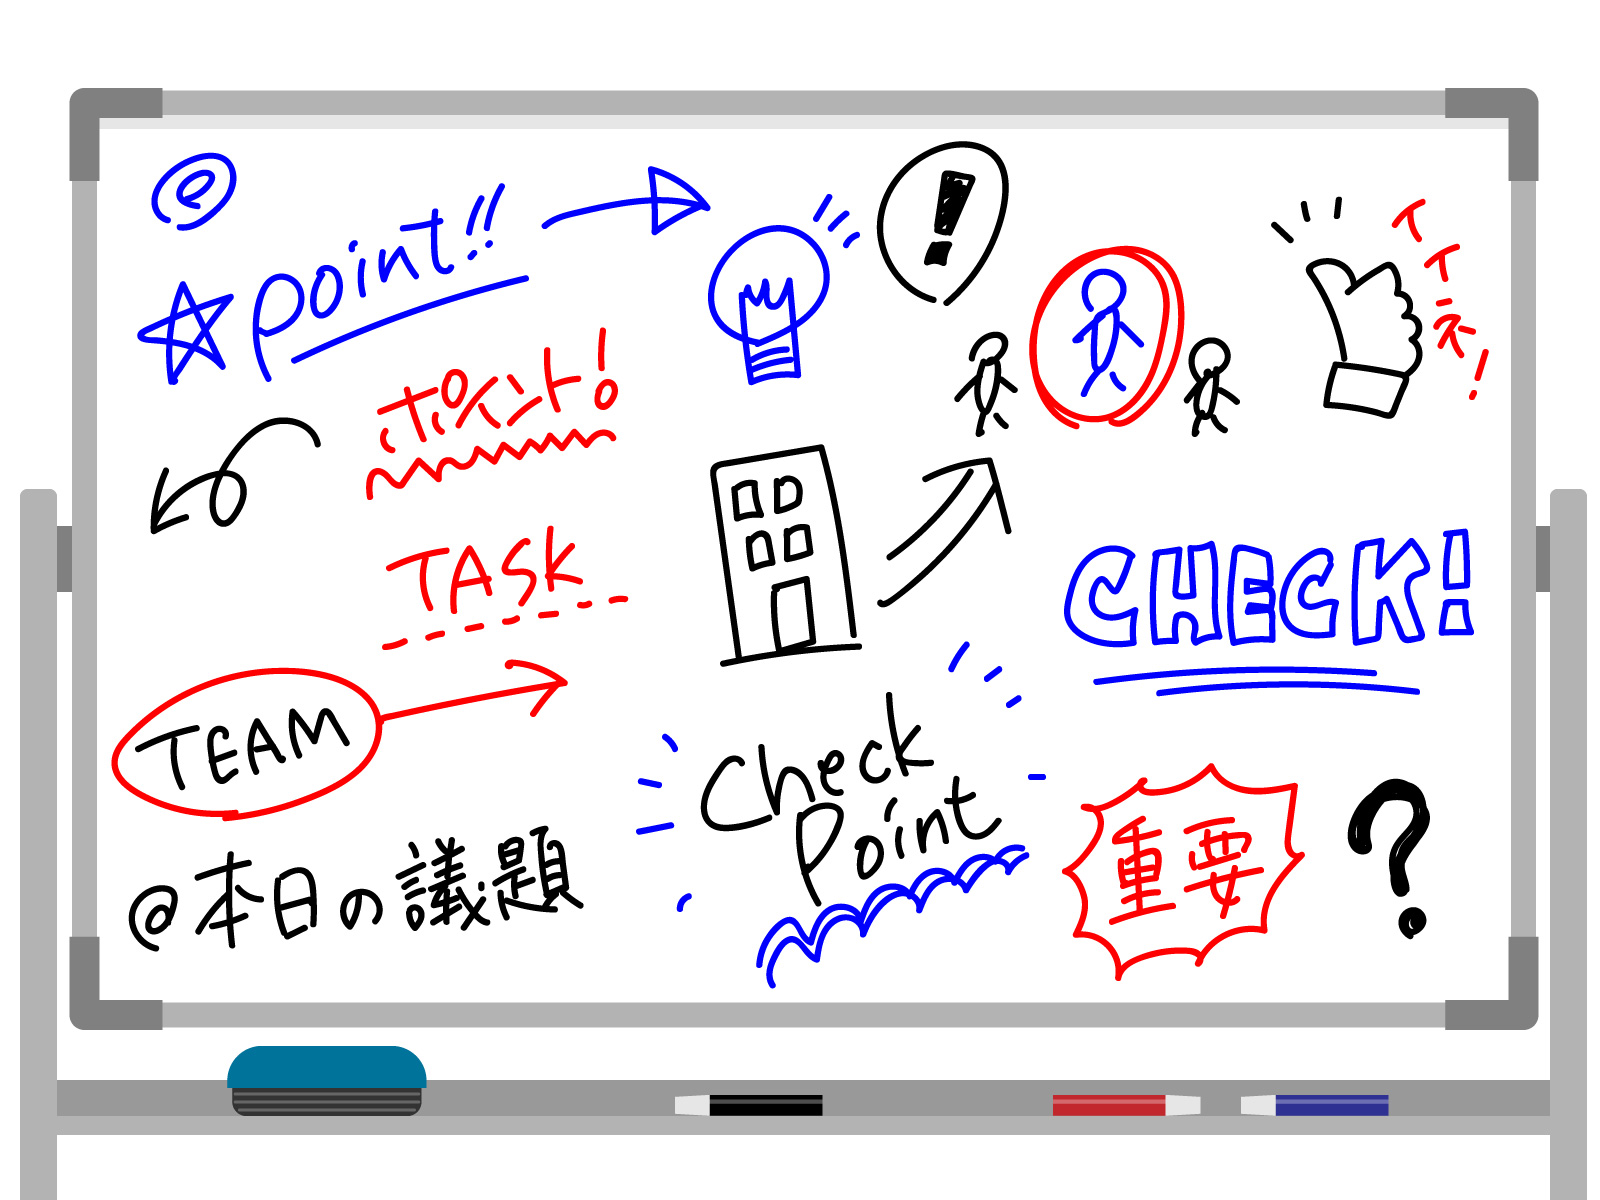 ☆point!!
ポイント!
TASK
TEAM
@本日の議題
!
イイネ!
CHECK!
Check
Point
重要
?